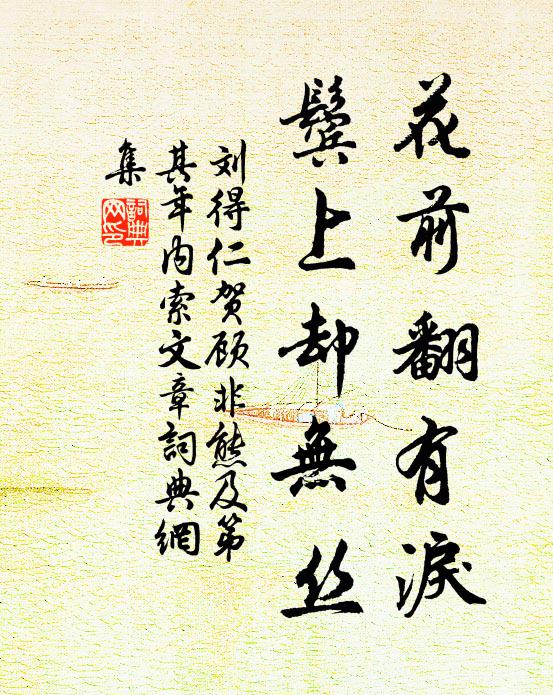 花前翻有淚
鬓上却無丝
刘得仁贺顾非熊及第
其年内索文章詞典網
集
詞典网印